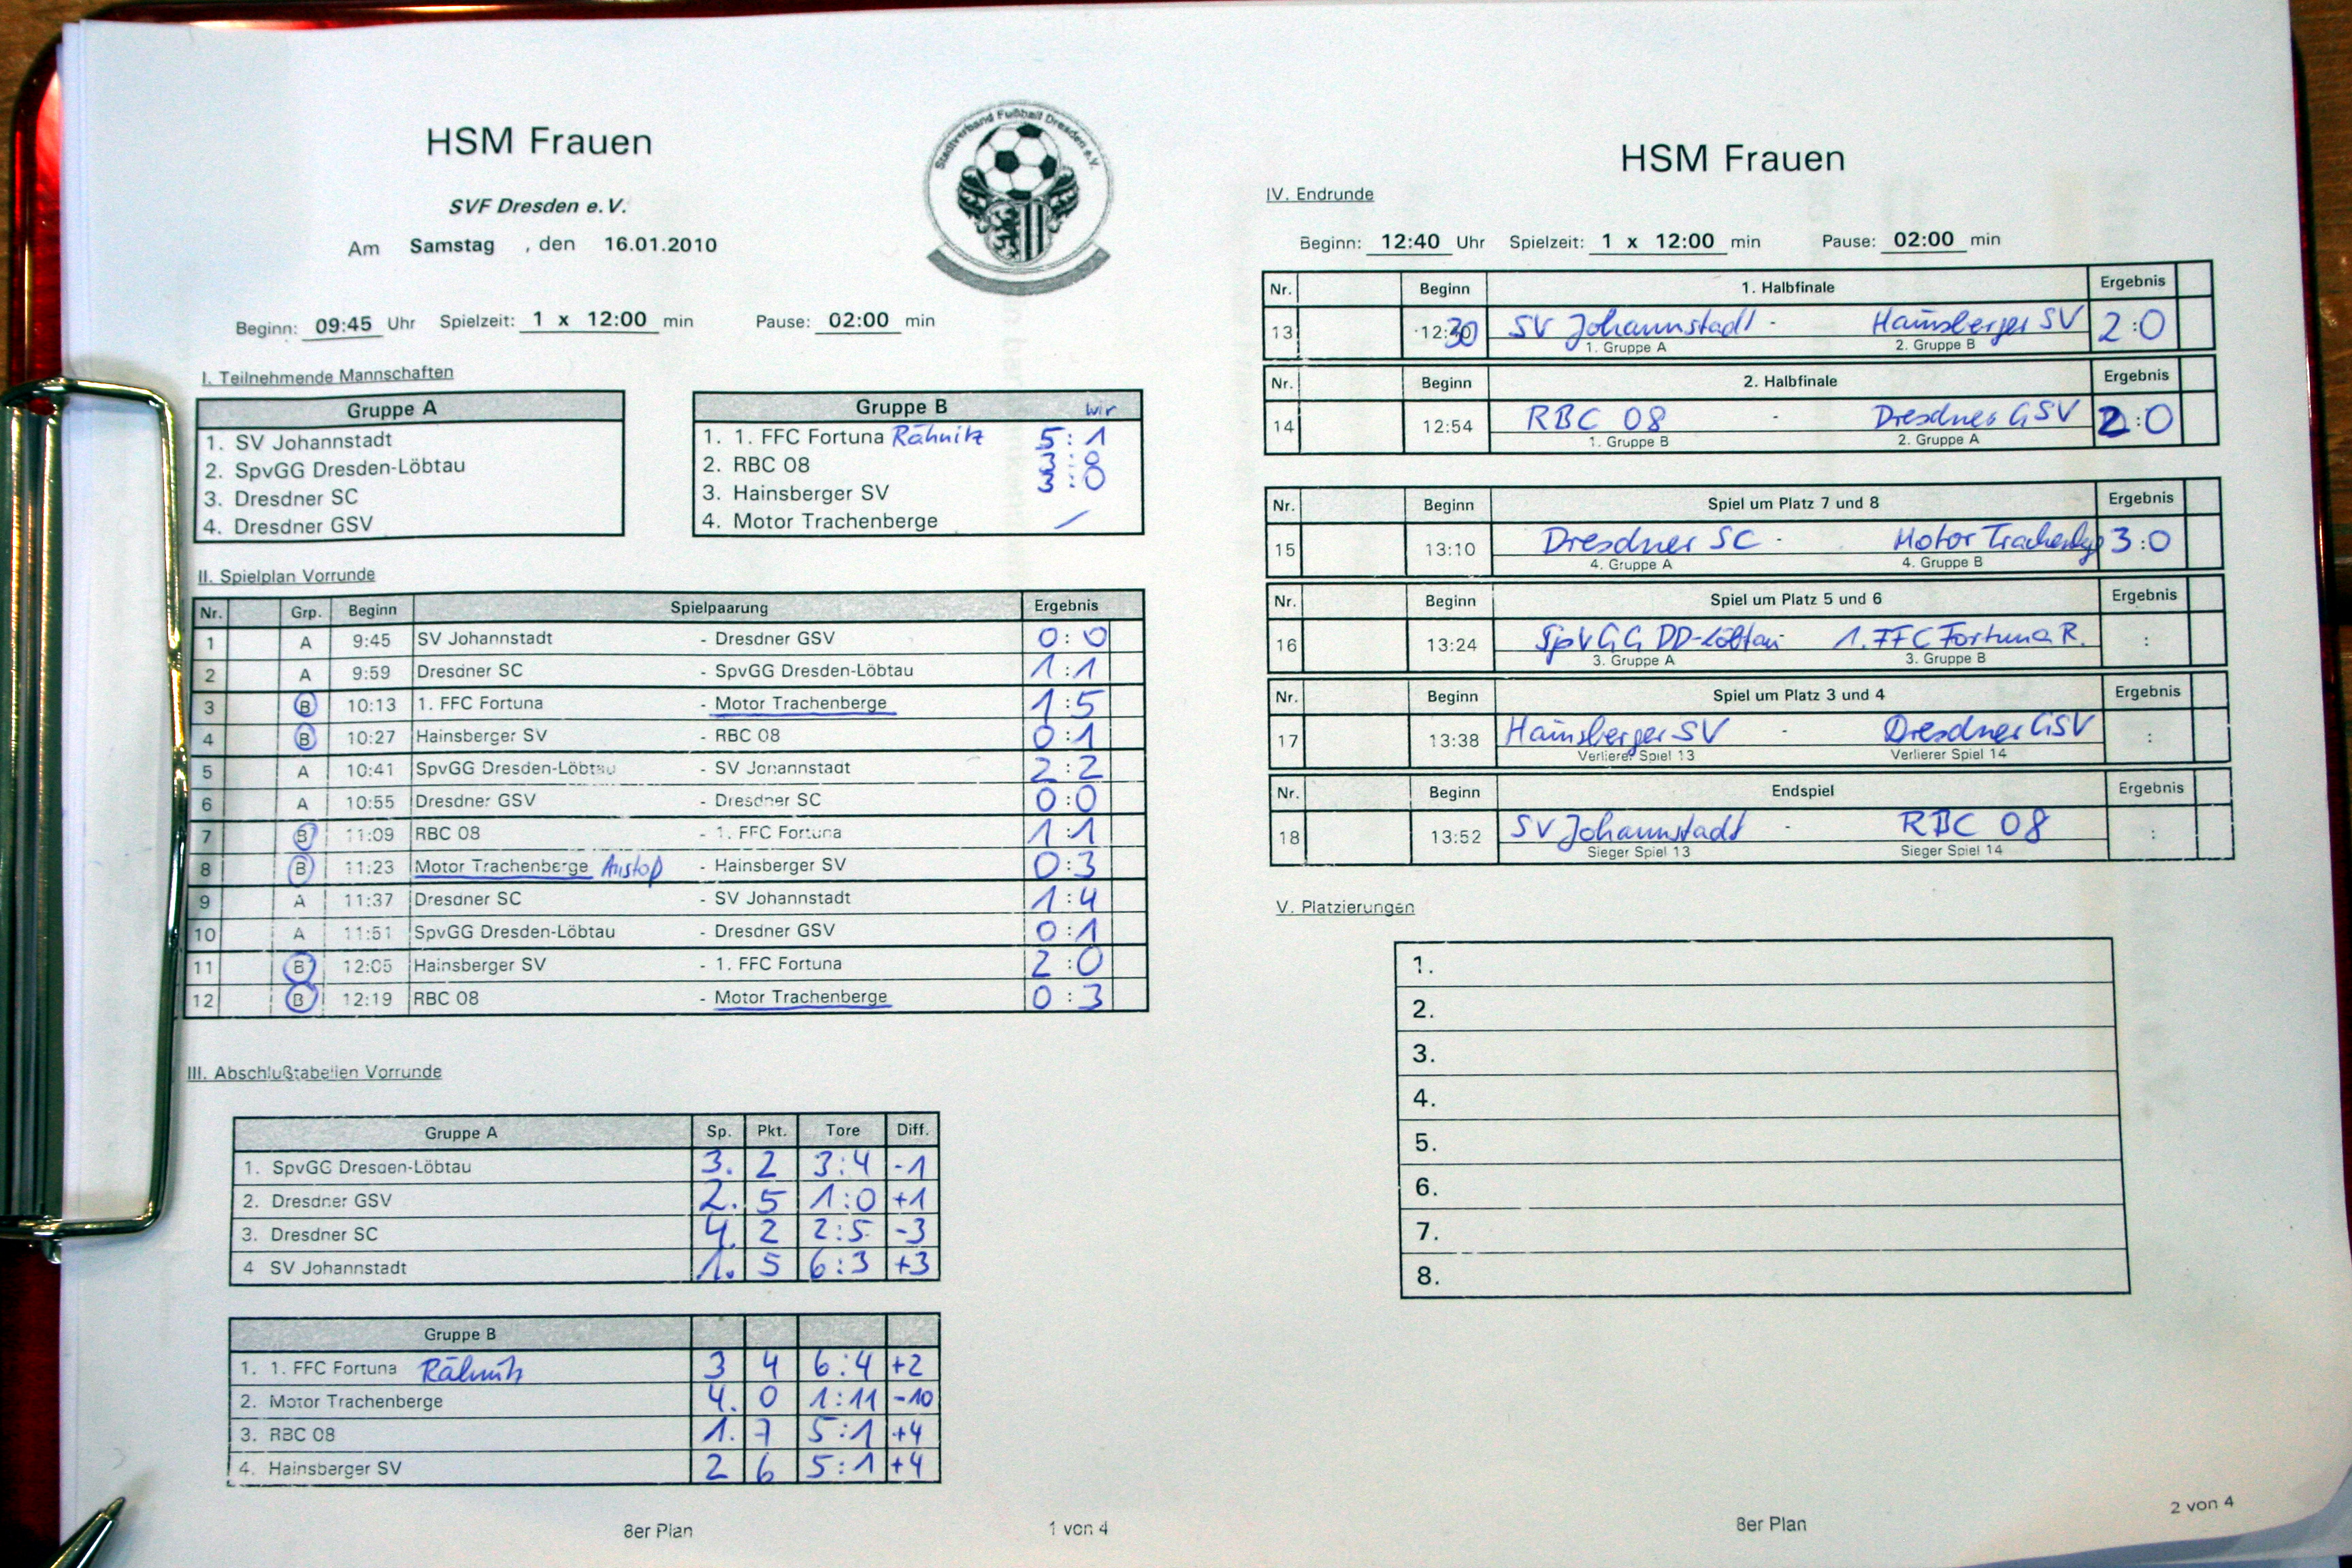 HSM Frauen
SVF Dresden e.V.
Am Samstag , den 16.01.2010
Stadtverband Fußball Dresden e.V.
Beginn: 09:45 Uhr Spielzeit: 1 x 12:00 min Pause: 02:00 min
I. Teilnehmende Mannschaften
Gruppe A
1. SV Johannstadt
2. SpvGG Dresden-Löbtau
3. Dresdner SC
4. Dresdner GSV
Gruppe B wir
1. 1. FFC Fortuna Rähnitz 5:1
2. RBC 08 3:0
3. Hainsberger SV 3:0
4. Motor Trachenberge /
II. Spielplan Vorrunde
Nr. Grp. Beginn Spielpaarung Ergebnis
1 A 9:45 SV Johannstadt - Dresdner GSV 0:0
2 A 9:59 Dresdner SC - SpvGG Dresden-Löbtau 1:1
3 B 10:13 1. FFC Fortuna - Motor Trachenberge 1:5
4 B 10:27 Hainsberger SV - RBC 08 0:1
5 A 10:41 SpvGG Dresden-Löbtau - SV Johannstadt 2:2
6 A 10:55 Dresdner GSV - Dresdner SC 0:0
7 B 11:09 RBC 08 - 1. FFC Fortuna 1:1
8 B 11:23 Motor Trachenberge Anstoß - Hainsberger SV 0:3
9 A 11:37 Dresdner SC - SV Johannstadt 1:4
10 A 11:51 SpvGG Dresden-Löbtau - Dresdner GSV 0:1
11 B 12:05 Hainsberger SV - 1. FFC Fortuna 2:0
12 B 12:19 RBC 08 - Motor Trachenberge 0:3
III. Abschlußtabellen Vorrunde
Gruppe A Sp. Pkt. Tore Diff.
1. SpvGG Dresden-Löbtau 3. 2 3:4 -1
2. Dresdner GSV 2. 5 1:0 +1
3. Dresdner SC 4. 2 2:5 -3
4 SV Johannstadt 1. 5 6:3 +3
Gruppe B
1. 1. FFC Fortuna Rähnitz 3 4 6:4 +2
2. Motor Trachenberge 4. 0 1:11 -10
3. RBC 08 1. 7 5:1 +4
4. Hainsberger SV 2 6 5:1 +4
8er Plan 1 von 4
HSM Frauen
IV. Endrunde
Beginn: 12:40 Uhr Spielzeit: 1 x 12:00 min Pause: 02:00 min
Nr. Beginn 1. Halbfinale Ergebnis
13 12:30 SV Johannstadt - Hainsberger SV 2:0
1. Gruppe A 2. Gruppe B
Nr. Beginn 2. Halbfinale Ergebnis
14 12:54 RBC 08 - Dresdner GSV 2:0
1. Gruppe B 2. Gruppe A
Nr. Beginn Spiel um Platz 7 und 8 Ergebnis
15 13:10 Dresdner SC - Motor Trachenbge 3:0
4. Gruppe A 4. Gruppe B
Nr. Beginn Spiel um Platz 5 und 6 Ergebnis
16 13:24 SpVGG DD-Löbtau - 1. FFC Fortuna R. :
3. Gruppe A 3. Gruppe B
Nr. Beginn Spiel um Platz 3 und 4 Ergebnis
17 13:38 Hainsberger SV - Dresdner GSV :
Verlierer Spiel 13 Verlierer Spiel 14
Nr. Beginn Endspiel Ergebnis
18 13:52 SV Johannstadt - RBC 08 :
Sieger Spiel 13 Sieger Spiel 14
V. Platzierungen
1.
2.
3.
4.
5.
6.
7.
8.
8er Plan 2 von 4